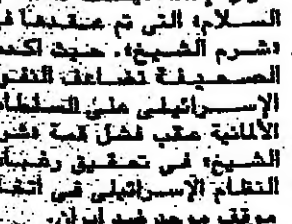 السلام، التي تم عقدها في
«شرم الشيخ». حيث أكدت
الصحيفة تضاعف النفوذ
الإسرائيلي على السلطات
الألمانية عقب فشل قمة «شرم
الشيخ» في تحقيق رغبات
النظام الإسرائيلي في اتخاذ
موقف موحد ضد إيران.